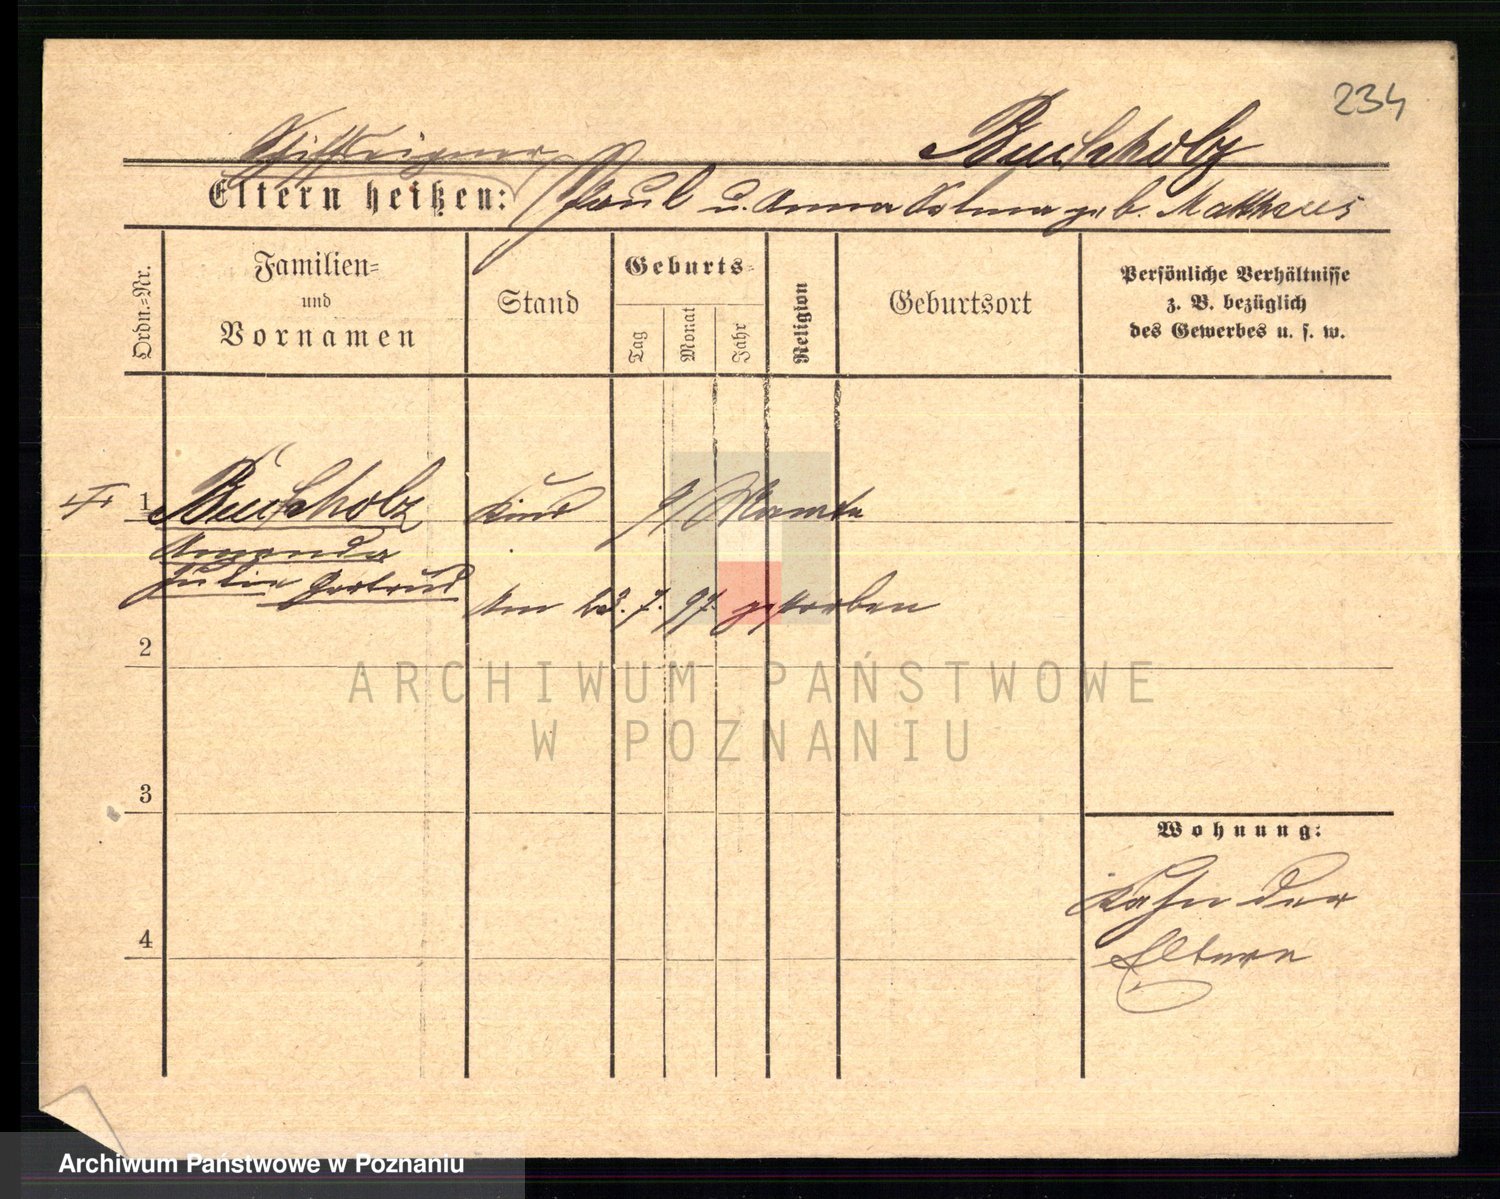 234
Schiffseigner Buchholz
Eltern heißen: Paul u. Anna Selma geb. Matthaeus
Ordn.-Nr.
Familien-
und
Vornamen
Stand
Geburts-
Tag
Monat
Jahr
Religion
Geburtsort
Persönliche Verhältnisse
z. B. bezüglich
des Gewerbes u. s. w.
1 Buchholz Kind 9 Monate
Amanda
Julie Gertrud
Am 23. 7. 97. gestorben
2
ARCHIWUM PAŃSTWOWE
W POZNANIU
3
Wohnung:
Kahn der
Eltern
4
Archiwum Państwowe w Poznaniu